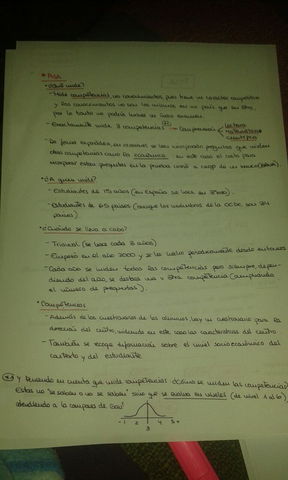 • PISA
¿Qué mide?
- Mide competencias no conocimientos, pues tiene un carácter competitivo
y los conocimientos no son los mismos en un país que en otro,
por lo tanto no podría haber un
- Exactamente mide 3 competencias → Comprensión lectora
matemática
científica
- De forma esporádica, en ocasiones se van incorporando preguntas que miden
otras competencias como la económica, en este caso el coste para
incorporar estas preguntas en la prueba corrió a cargo de un banco
¿A quién mide?
- Estudiantes de 15 años (en España se hace en 3º ESO).
- Estudiantes de 65 países (aunque los miembros de la OCDE son 34
países).
¿Cuándo se lleva a cabo?
- Trianual (se hace cada 3 años)
- Empezó en el año 2000 y se ha hecho periódicamente desde entonces
- Cada año se miden todas las competencias pero siempre, depen-
diendo del año, se destaca una u otra competencia (ampliando
el número de preguntas).
• Competencias
- Además de los cuestionarios de los alumnos, hay un cuestionario para la
dirección del centro, midiendo en este caso las características del centro
- También se recoge información sobre el nivel socioeconómico del
contexto y del estudiante.
Y teniendo en cuenta que mide competencias ¿Cómo se miden las competencias?
Estas no "se saben o no se saben" sino que se evalúan en niveles (de nivel 1 al 6),
atendiendo a la campana de Gauss
-1 2 3 4 5+